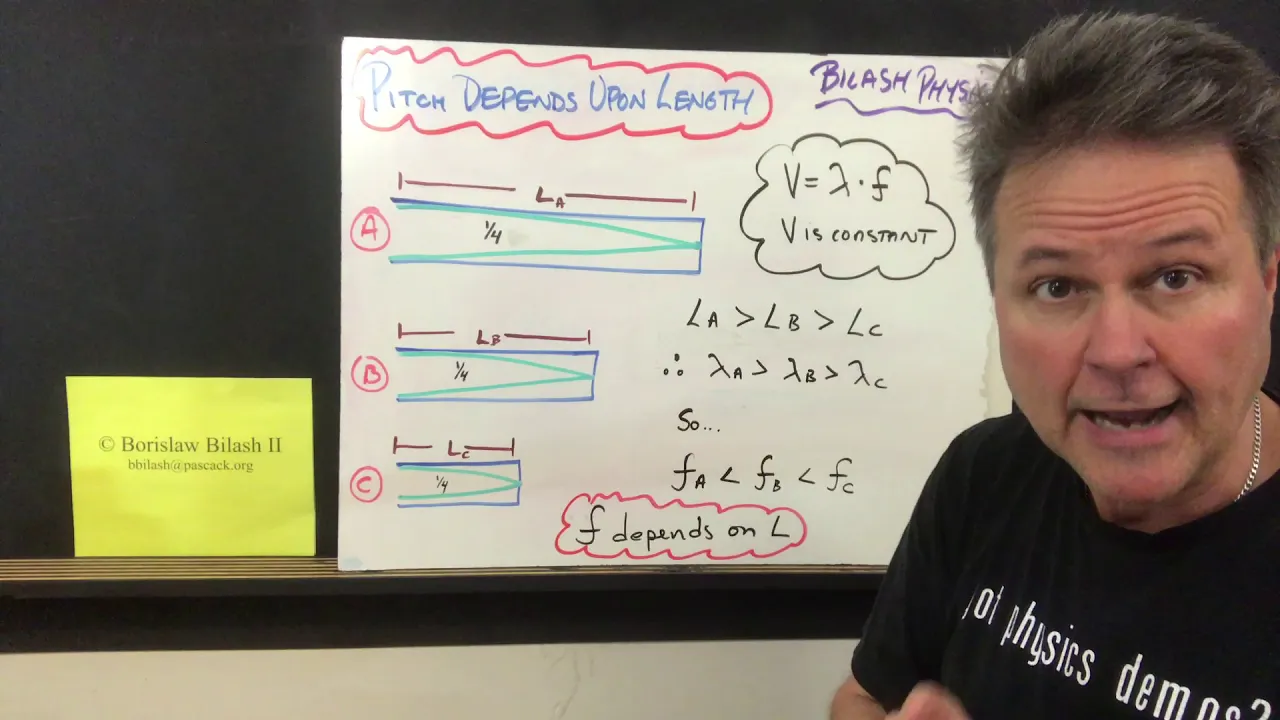 PITCH DEPENDS UPON LENGTH
BILASH PHYSI
V = λ · f
V IS CONSTANT
A
LA
1/4
B
LB
1/4
C
LC
1/4
LA > LB > LC
∴ λA > λB > λC
So...
fA < fB < fC
f depends on L
© Borislaw Bilash II
bbilash@pascack.org
got physics demos?